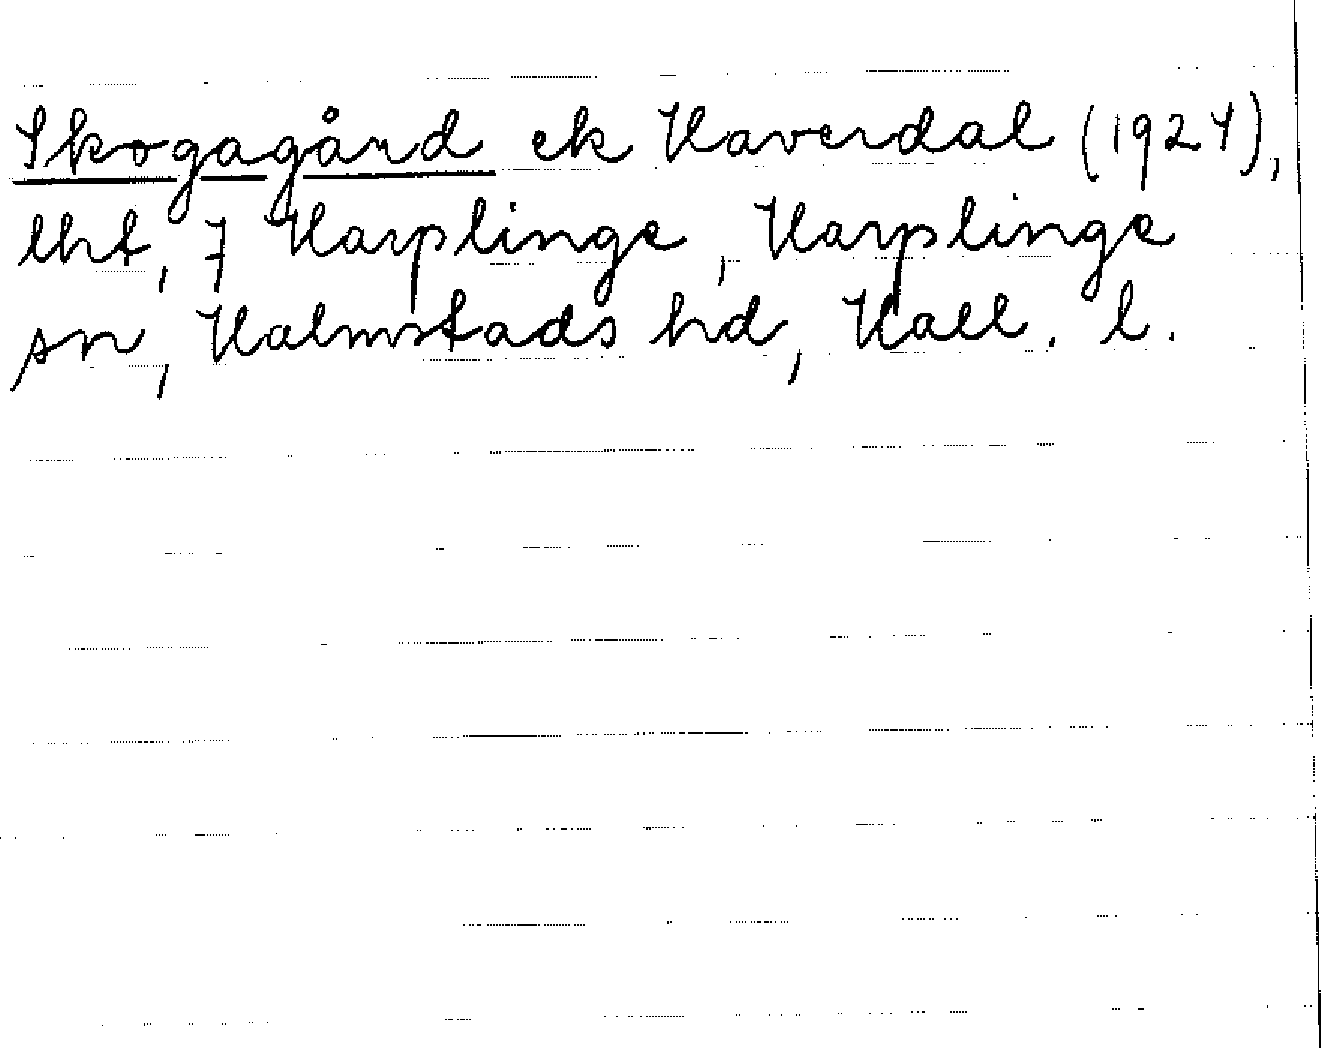 Skogagård ek Haverdal (1924),
lht, 7 Harplinge, Harplinge
sn, Halmstads hd, Hall. l.